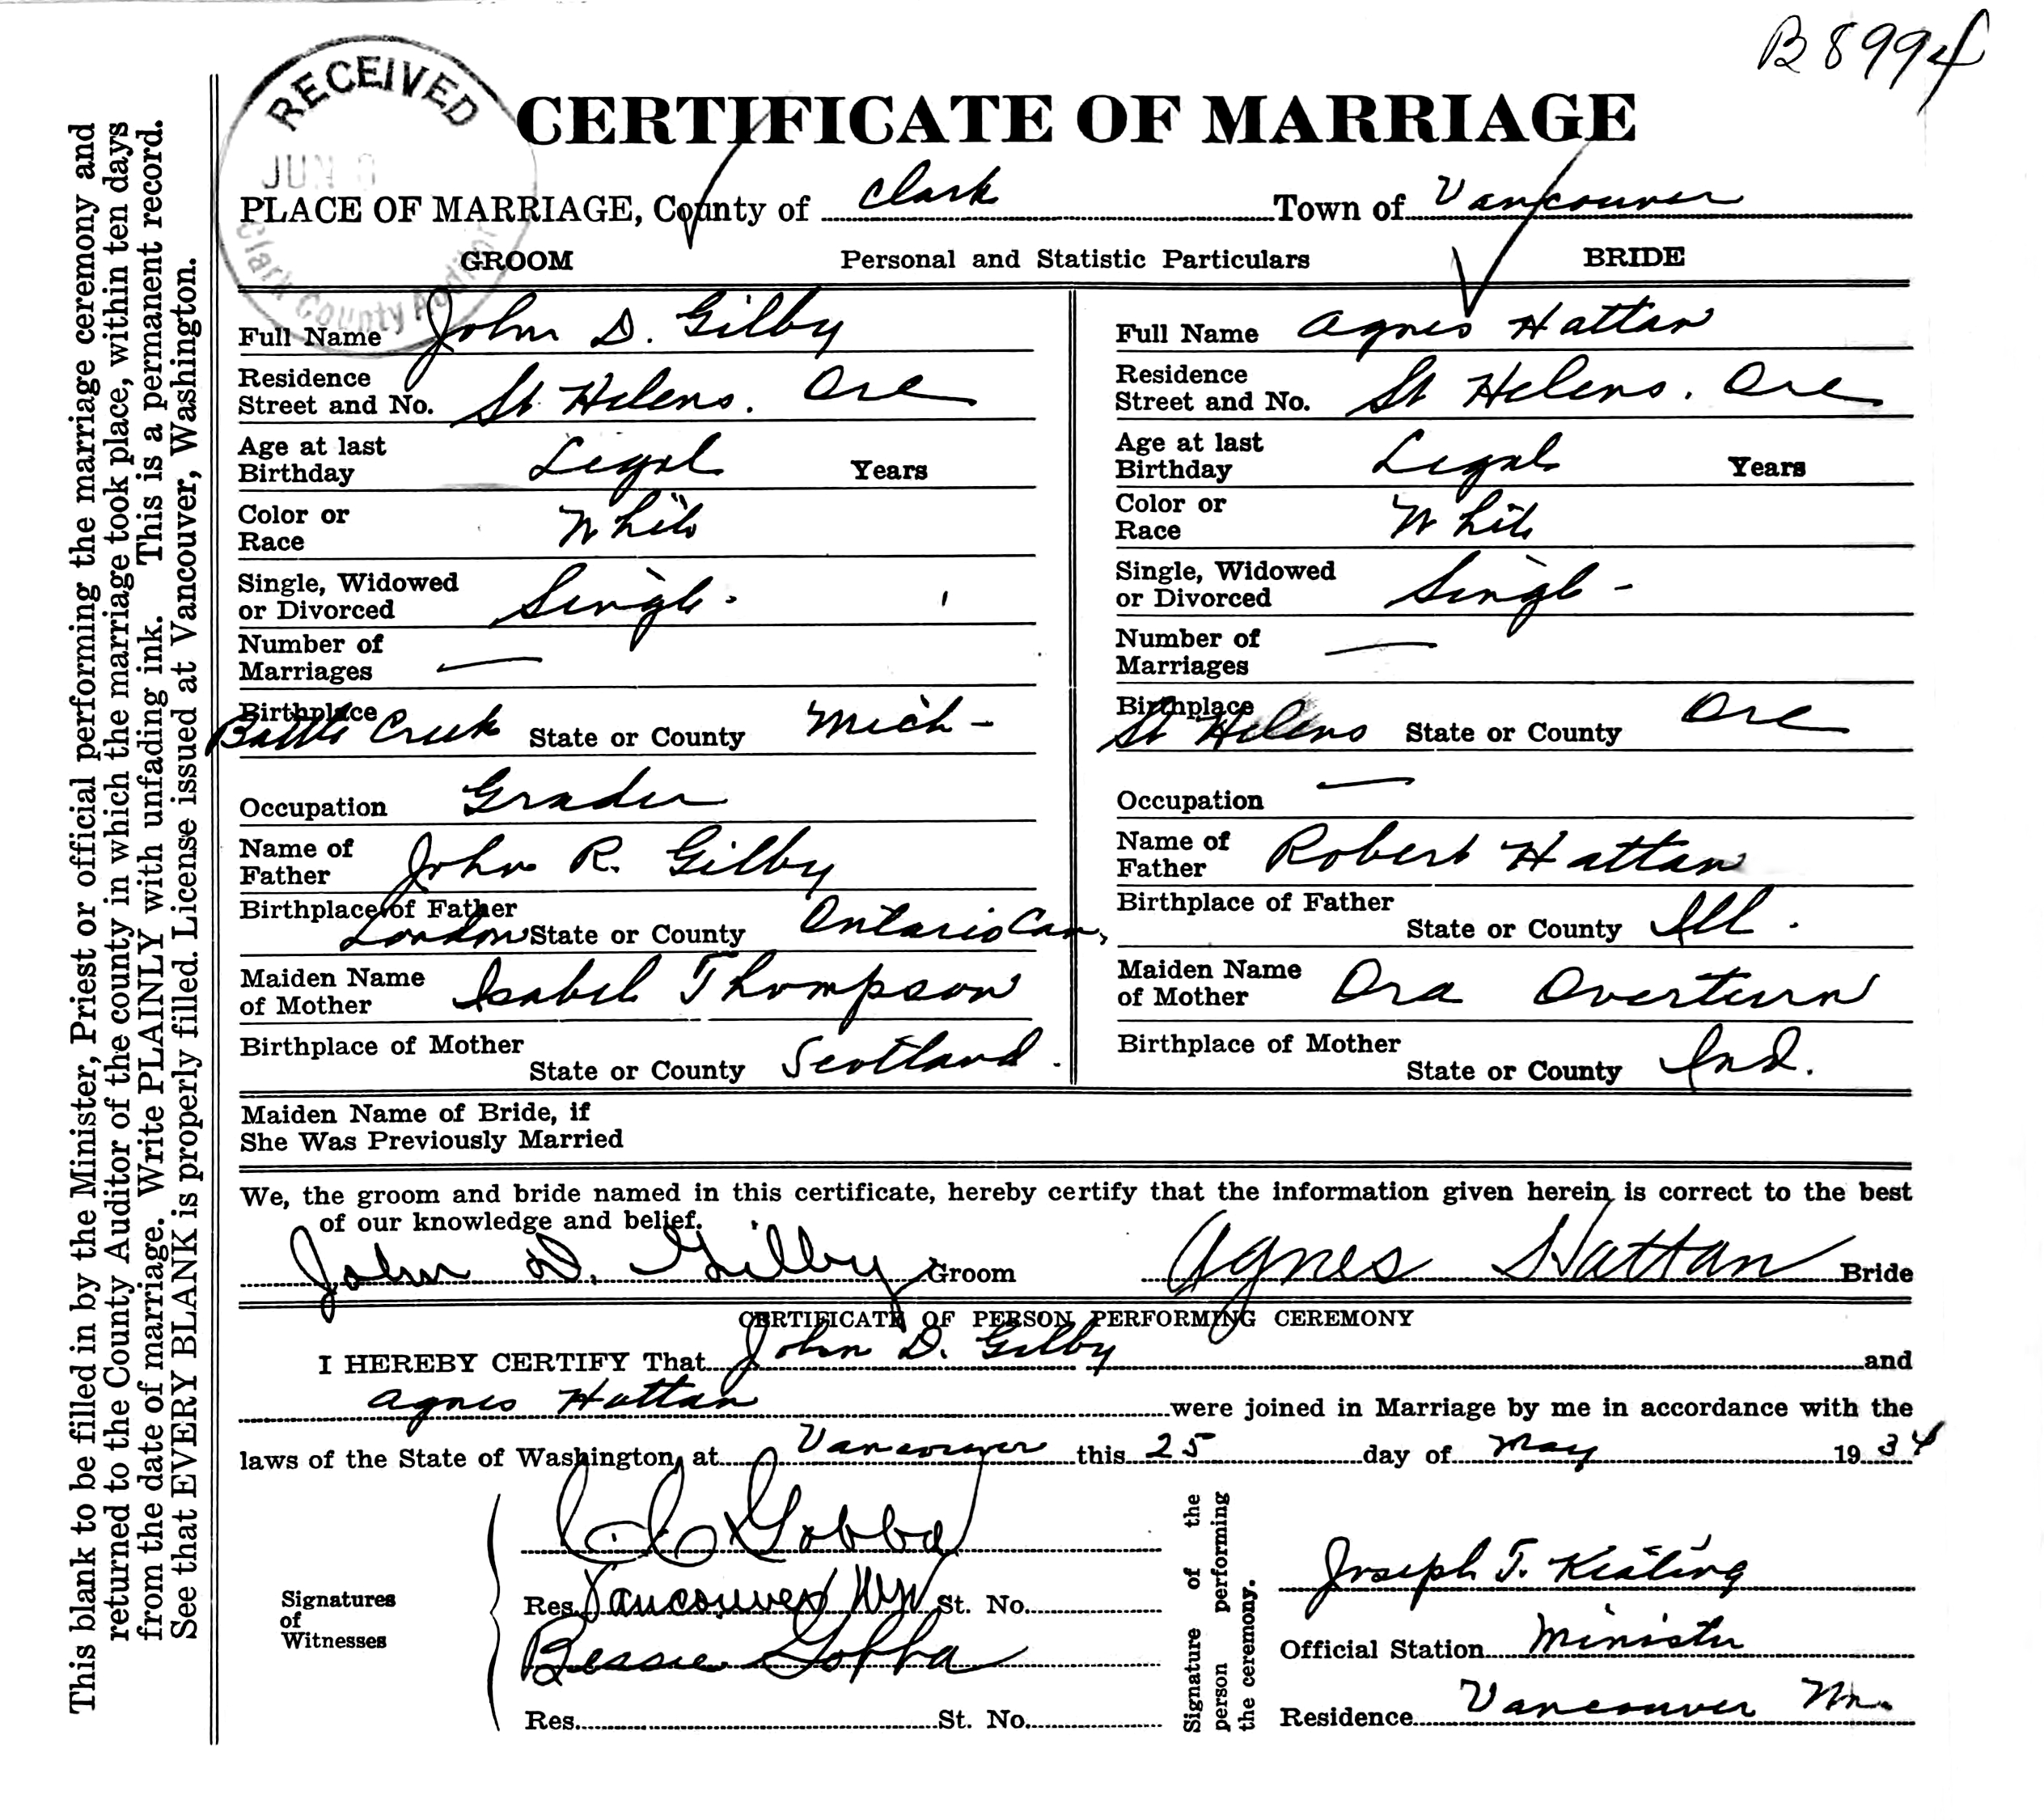 B 8994
RECEIVED
JUN
Clark County Auditor
CERTIFICATE OF MARRIAGE
PLACE OF MARRIAGE, County of Clark Town of Vancouver
GROOM Personal and Statistic Particulars BRIDE
Full Name John D. Gilby
Residence
Street and No. St Helens. Ore
Age at last
Birthday Legal Years
Color or
Race White
Single, Widowed
or Divorced Single -
Number of
Marriages —
Birthplace
Battle Creek State or County Mich -
Occupation Grader
Name of
Father John R. Gilby
Birthplace of Father
London State or County Ontario Can,
Maiden Name
of Mother Isabel Thompson
Birthplace of Mother
State or County Scotland.
Full Name Agnes Hattan
Residence
Street and No. St Helens. Ore
Age at last
Birthday Legal Years
Color or
Race White
Single, Widowed
or Divorced Single -
Number of
Marriages —
Birthplace
St Helens State or County Ore
Occupation —
Name of
Father Robert Hattan
Birthplace of Father
State or County Ill.
Maiden Name
of Mother Ora Overturn
Birthplace of Mother
State or County Ind.
Maiden Name of Bride, if
She Was Previously Married
We, the groom and bride named in this certificate, hereby certify that the information given herein is correct to the best
of our knowledge and belief.
John D. Gilby Groom Agnes Hattan Bride
CERTIFICATE OF PERSON PERFORMING CEREMONY
I HEREBY CERTIFY That John D. Gilby and
Agnes Hattan were joined in Marriage by me in accordance with the
laws of the State of Washington, at Vancouver this 25 day of May 1934
Signatures
of
Witnesses
Gobba
Res. Vancouver Wn St. No.
Bessie Gobba
Res. St. No.
Signature of the
person performing
the ceremony.
Joseph T. Keating
Official Station Minister
Residence Vancouver Wn.
This blank to be filled in by the Minister, Priest or official performing the marriage ceremony and
returned to the County Auditor of the county in which the marriage took place, within ten days
from the date of marriage. Write PLAINLY with unfading ink. This is a permanent record.
See that EVERY BLANK is properly filled. License issued at Vancouver, Washington.